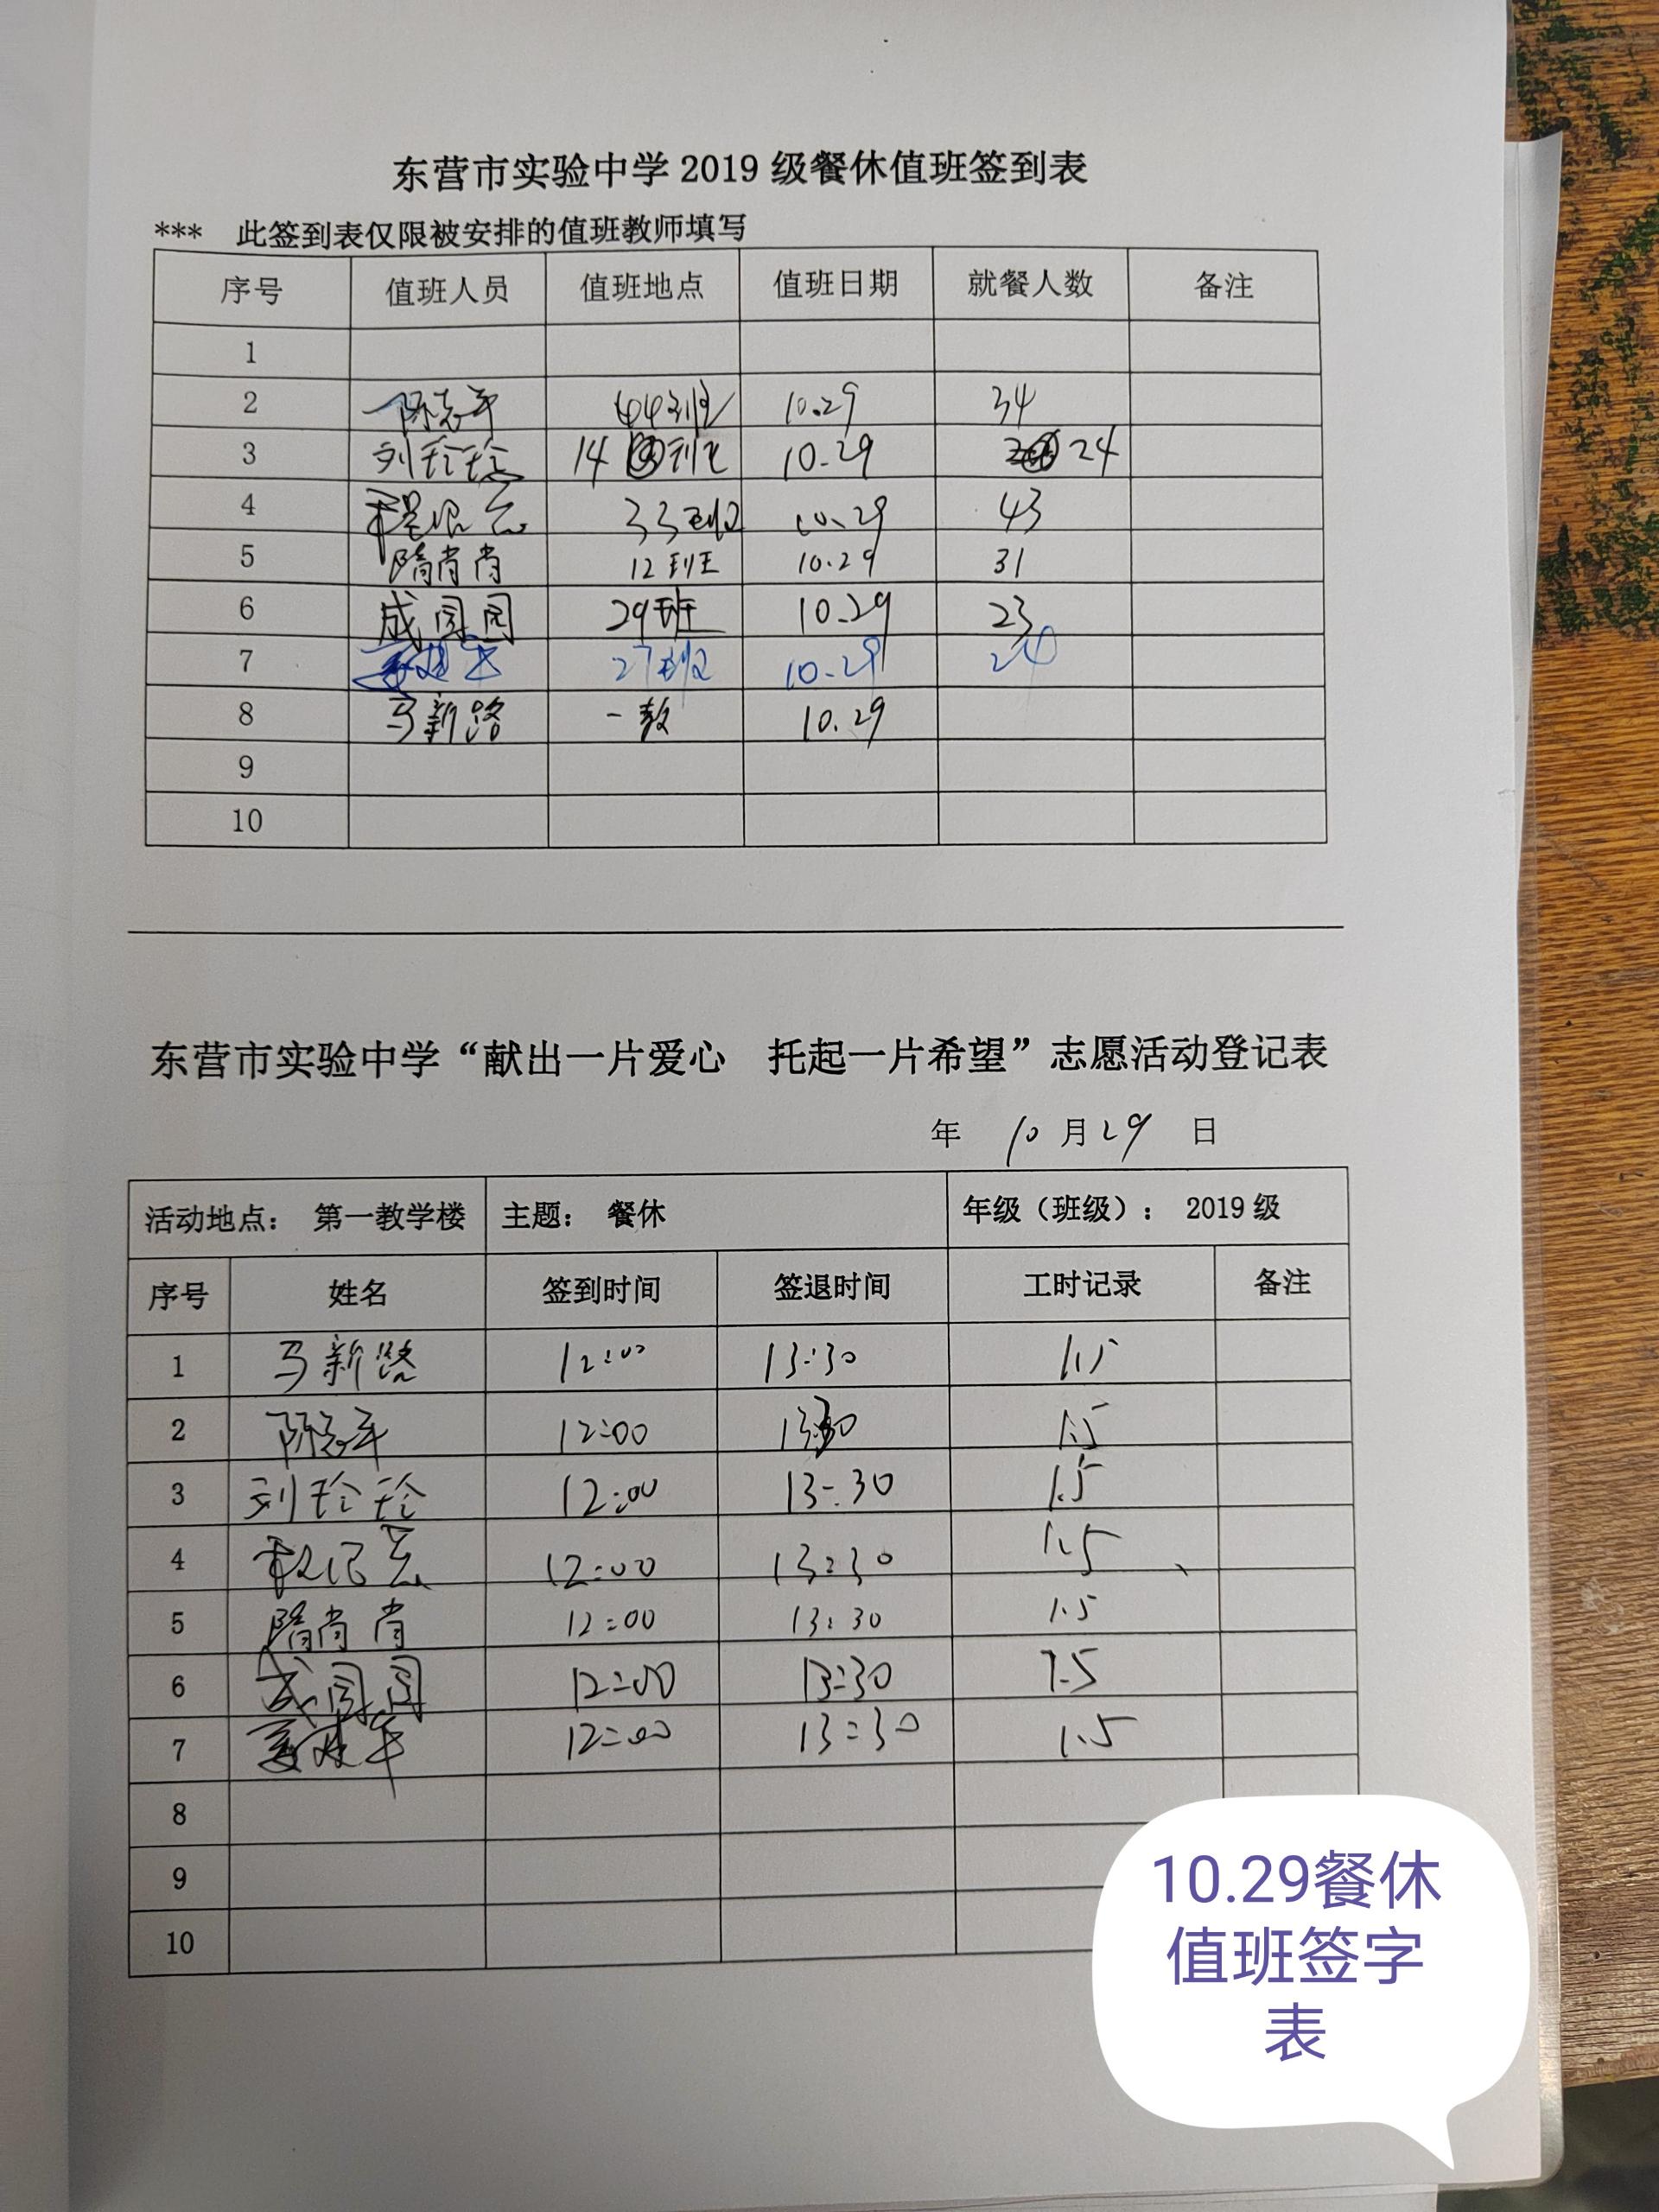 东营市实验中学 2019 级餐休值班签到表
*** 此签到表仅限被安排的值班教师填写
序号 值班人员 值班地点 值班日期 就餐人数 备注
1
2 陈志平 44班 10.29 34
3 刘玲玲 14 班 10.29 24
4 33班 10.29 43
5 隋肖肖 12班 10.29 31
6 成囡囡 29班 10.29 23
7 27班 10.29
8 马新路 一教 10.29
9
10
东营市实验中学“献出一片爱心 托起一片希望”志愿活动登记表
年 10 月 29 日
活动地点： 第一教学楼 主题： 餐休 年级（班级）： 2019 级
序号 姓名 签到时间 签退时间 工时记录 备注
1 马新路 12:00 13:30 1.5
2 陈志平 12:00 13:30 1.5
3 刘玲玲 12:00 13:30 1.5
4 12:00 13:30 1.5
5 隋肖肖 12:00 13:30 1.5
6 成囡囡 12:00 13:30 1.5
7 12:00 13:30 1.5
8
9
10
10.29餐休
值班签字
表